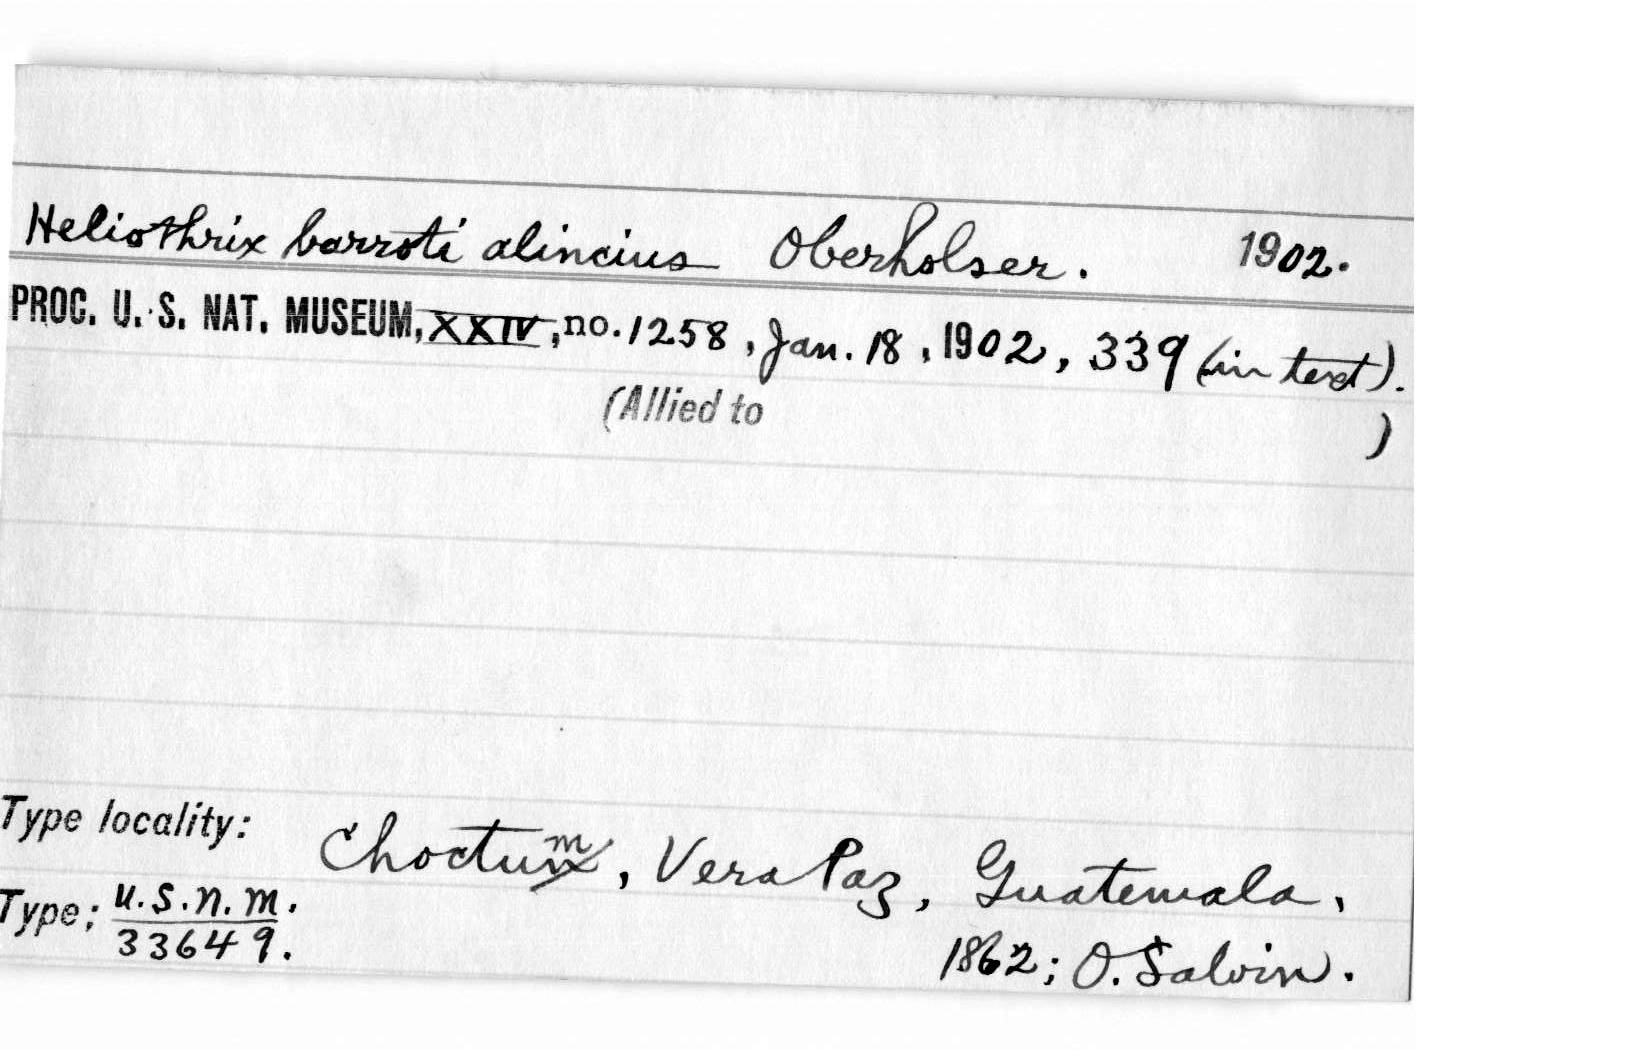 Heliothrix barroti alincius Oberholser. 1902.
PROC. U. S. NAT. MUSEUM, XXIV, no. 1258, Jan. 18, 1902, 339 (in text).
(Allied to )
Type locality: Choctum, Vera Paz, Guatemala,
Type; U.S.N.M. 33649. 1862; O. Salvin.